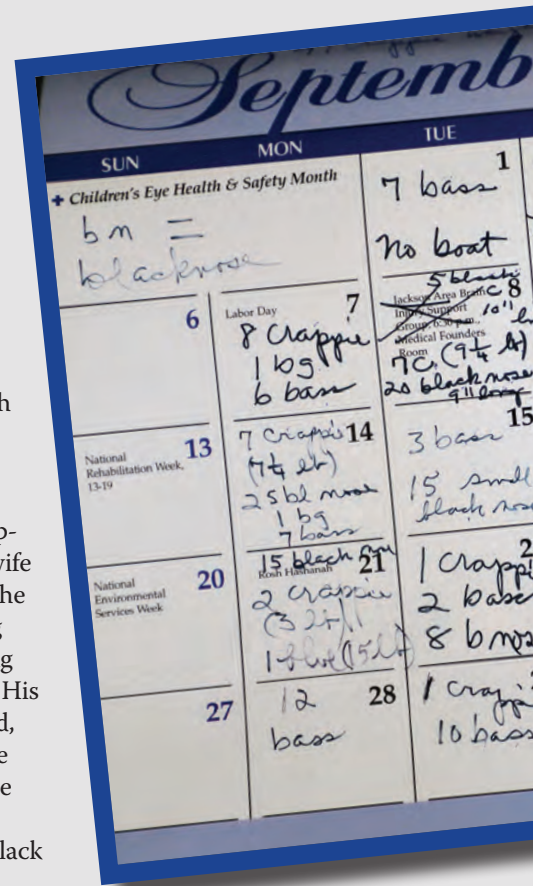 Septemb
SUN
MON
TUE
+ Children's Eye Health & Safety Month
bn =
blacknose
1
7 bass
No boat
6
Labor Day
7
8 Crappie
1 bg
6 bass
5 black
Jackson Area Brain
Injury Support
Group, 6:30 p.m.,
Medical Founders
Room
8
10"
7C (9 1/4 lb)
20 black nose
9" long
National
Rehabilitation Week,
13-19
13
14
7 Crappie
(7 1/4 lb)
25 bl nose
1 bg
7 bass
15
3 bass
15 small
black nos
National
Environmental
Services Week
20
15 black
Rosh Hashanah
21
2 crappie
(3 lb)
1 blue (15 lb)
2
1 Crappi
2 bass
8 b nos
27
28
12
bass
1 Crappi
10 bass
h
p-
wife
he
g
g
His
d,
e
e
lack